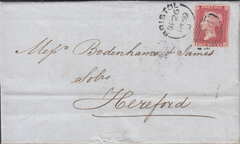 BRISTOL
Messrs Bodenhams & James
Solrs
Hereford